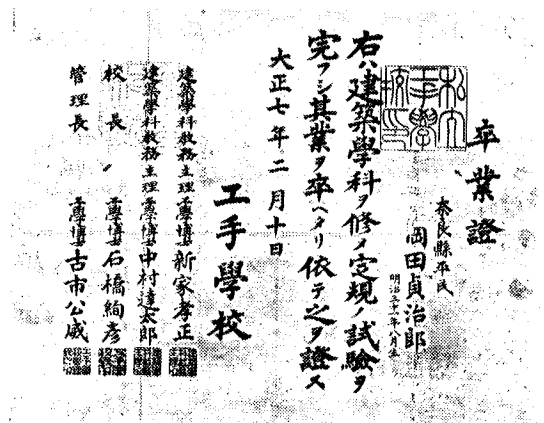 卒業證
奈良縣平民
岡田貞治郎
明治三十一年八月生
右ハ建築學科ヲ修メ定規ノ試驗ヲ
完フシ其業ヲ卒ヘタリ依テ之ヲ證ス
大正七年二月十日
工手學校
建築學科教務主理 工學博士 新家孝正
建築學科教務主理 工學博士 中村達太郎
校長 工學博士 石橋絢彦
管理長 工學博士 古市公威
私立工手學校印